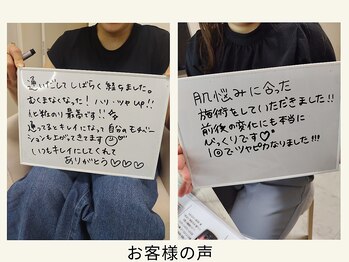 通いだしてしばらく経ちました。
むくまなくなった！ハリ・ツヤUP!!
化粧のり最高です!!
通ってるとキレイになって自分のモチベー
ションも上がってきてます
いつもキレイにしてくれて
ありがとう♡♡♡
肌悩みに合った
施術をしていただきました!!
前後の変化にも本当に
びっくりです♡
1回でツヤピカなりました!!!
お客様の声